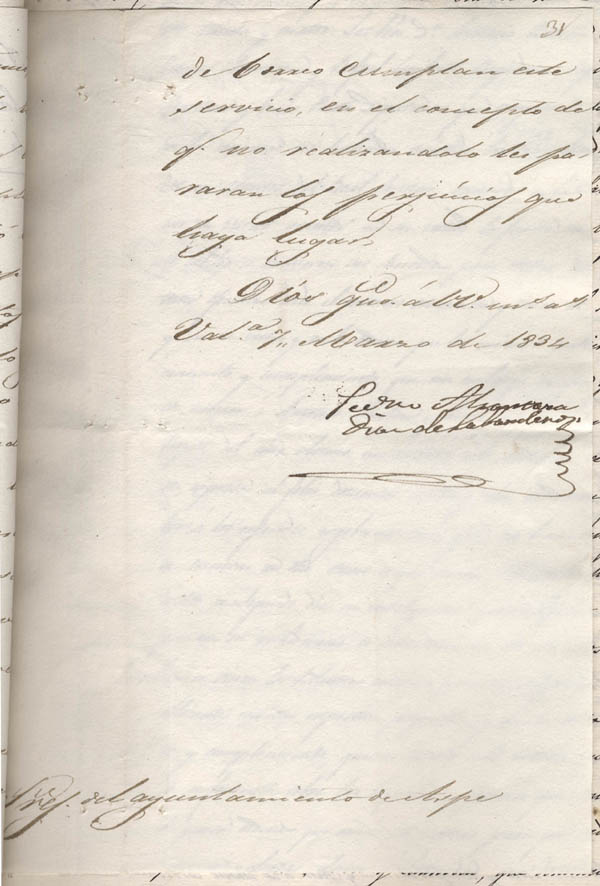 31
de Correo cumplan este
servicio, en el concepto de
q.e no realizandolo les pa-
raran los perjuicios que
haya lugar.
Dios gue. á V. m.s a.s
Val.a 7,, Marzo de 1834
Pedro Alcantara
Diaz de
Sres. del ayuntamiento de Aspe